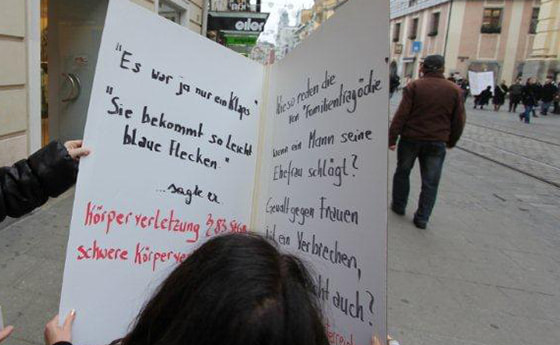 "Es war ja nur ein Klaps"
"Sie bekommt so leicht
blaue Flecken."
...sagte er
Körperverletzung § 83 StGB
schwere Körperver
Wieso reden die
von "Familientragödie",
wenn ein Mann seine
Ehefrau schlägt?
Gewalt gegen Frauen
ein Verbrechen,
auch?
eller